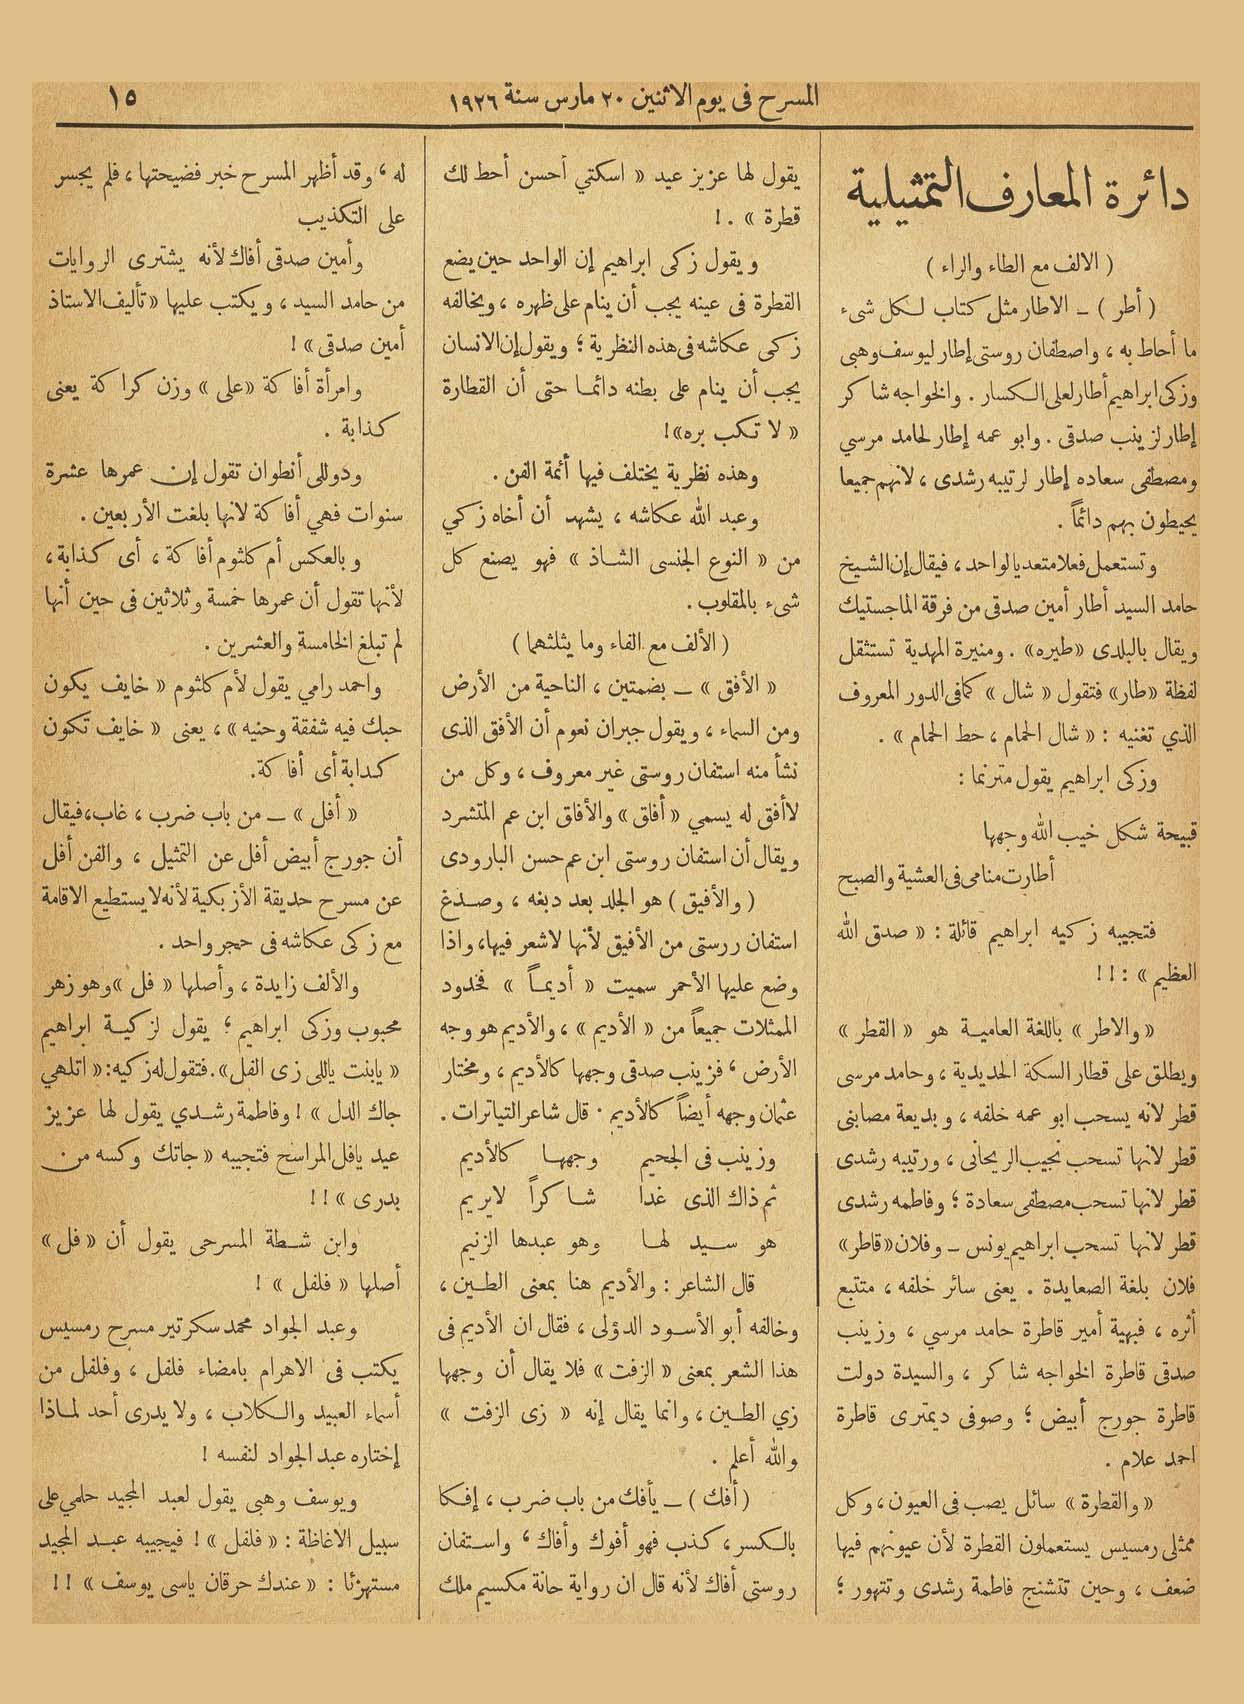 المسرح في يوم الاثنين ٢٠ مارس سنة ١٩٢٦
١٥
دائرة المعارف التمثيلية
( الالف مع الطاء والراء )
( أطر ) ــ الاطار مثل كتاب لكل شىء
ما أحاط به ، واصطفان روستى إطار ليوسف وهبى
وزكى ابراهيم أطار لعلى الكسار . والخواجه شاكر
إطار لزينب صدقى . وابو عمه إطار لحامد مرسي
ومصطفى سعاده إطار لرتيبه رشدى ، لانهم جميعا
يحيطون بهم دائماً .
وتستعمل فعلا متعديا لواحد ، فيقال إن الشيخ
حامد السيد أطار أمين صدقى من فرقة الماجستيك
ويقال بالبلدى «طيره» . ومنيرة المهدية تستثقل
لفظة «طار» فتقول « شال » كما فى الدور المعروف
الذي تغنيه : « شال الحمام ، حط الحمام » .
وزكى ابراهيم يقول مترنما :
قبيحة شكل خيب الله وجهها
أطارت منامى فى العشية والصبح
فتجيبه زكيه ابراهيم قائلة : « صدق الله
العظيم » : ! !
« والاطر » باللغة العامية هو « القطر »
ويطلق على قطار السكة الحديدية ، وحامد مرسى
قطر لانه يسحب ابو عمه خلفه ، وبديعة مصابنى
قطر لانها تسحب نجيب الريحانى ، ورتيبه رشدى
قطر لانها تسحب مصطفى سعادة ؛ وفاطمه رشدى
قطر لانها تسحب ابراهيم يونس ــ وفلان «قاطر»
فلان بلغة الصعايدة . يعنى سائر خلفه ، متتبع
أثره ، فبهية أمير قاطرة حامد مرسي ، وزينب
صدقى قاطرة الخواجه شاكر ، والسيدة دولت
قاطرة جورج أبيض ؛ وصوفى ديمترى قاطرة
احمد علام .
« والقطرة » سائل يصب فى العيون ، وكل
ممثلى رمسيس يستعملون القطرة لأن عيونهم فيها
ضعف ، وحين تتشنج فاطمة رشدى وتتهور ؛
يقول لها عزيز عيد « اسكتي أحسن أحط لك
قطرة » . !
ويقول زكى ابراهيم إن الواحد حين يضع
القطرة فى عينه يجب أن ينام على ظهره ، ويخالفه
زكى عكاشه فى هذه النظرية ؛ ويقول إن الانسان
يجب أن ينام على بطنه دائما حتى أن القطارة
« لا تكب بره» !
وهذه نظرية يختلف فيها أئمة الفن .
وعبد الله عكاشه ، يشهد أن أخاه زكي
من « النوع الجنسى الشاذ » فهو يصنع كل
شىء بالمقلوب .
( الألف مع الفاء وما يثلثهما )
« الأفق » ــ بضمتين ، الناحية من الأرض
ومن السماء ، ويقول جبران نعوم أن الأفق الذى
نشأ منه استفان روستى غير معروف ، وكل من
لا أفق له يسمي « أفاق » والأفاق ابن عم المتشرد
ويقال أن استفان روستى ابن عم حسن البارودى
( والأفيق ) هو الجلد بعد دبغه ، وصدغ
استفان ررستى من الأفيق لأنها لاشعر فيها ، واذا
وضع عليها الأحمر سميت « أديماً » فخدود
الممثلات جميعاً من « الأديم » ، والأديم هو وجه
الأرض ، فزينب صدقى وجهها كالأديم ، ومختار
عثمان وجهه أيضاً كالأديم . قال شاعر التياترات .
وزينب فى الجحيم وجهها كالأديم
ثم ذاك الذى غدا شاكراً لا يريم
هو سيد لها وهو عبدها الزنيم
قال الشاعر : والأديم هنا بمعنى الطين ،
وخالفه أبو الأسود الدؤلى ، فقال ان الأديم فى
هذا الشعر بمعنى « الزفت » فلا يقال أن وجهها
زي الطين ، وانما يقال إنه « زى الزفت »
والله أعلم .
( أفك ) ــ يأفك من باب ضرب ، إفكا
بالكسر ، كذب فهو أفوك وأفاك ، واستفان
روستى أفاك لأنه قال ان رواية حانة مكسيم ملك
له ، وقد أظهر المسرح خبر فضيحتها ، فلم يجسر
على التكذيب
وأمين صدقى أفاك لأنه يشترى الروايات
من حامد السيد ، ويكتب عليها «تأليف الاستاذ
أمين صدقى» !
وامرأة أفاكة «على » وزن كراكة يعنى
كذابة .
ودوللى أنطوان تقول إن عمرها عشرة
سنوات فهي أفاكة لانها بلغت الأربعين .
وبالعكس أم كلثوم أفاكة ، أى كذابة ،
لأنها تقول أن عمرها خمسة وثلاثين فى حين أنها
لم تبلغ الخامسة والعشرين .
واحمد رامي يقول لأم كلثوم « خايف يكون
حبك فيه شفقة وحنيه » ، يعنى « خايف تكون
كدابة أى أفاكة .
« أفل » ــ من باب ضرب ، غاب ، فيقال
أن جورج أبيض أفل عن التمثيل ، والفن أفل
عن مسرح حديقة الأزبكية لأنه لا يستطيع الاقامة
مع زكى عكاشه فى حجر واحد .
والألف زايدة ، وأصلها « فل » وهو زهر
محبوب وزكى ابراهيم ؛ يقول لزكية ابراهيم
« يابنت ياللى زى الفل» . فتقول له زكيه : « اتلهي
جاك الدل » ! وفاطمة رشدي يقول لها عزيز
عيد يافل المراسح فتجيبه « جاتك وكسه من
بدرى » ! !
وابن شطة المسرحى يقول أن « فل »
أصلها « فلفل » !
وعبد الجواد محمد سكرتير مسرح رمسيس
يكتب فى الاهرام بامضاء فلفل ، وفلفل من
أسماء العبيد والكلاب ، ولا يدرى أحد لماذا
إختاره عبد الجواد لنفسه !
ويوسف وهبى يقول لعبد المجيد حلمي على
سبيل الاغاظة : « فلفل » ! فيجيبه عبد المجيد
مستهزئا : « عندك حرقان ياسى يوسف » ! !